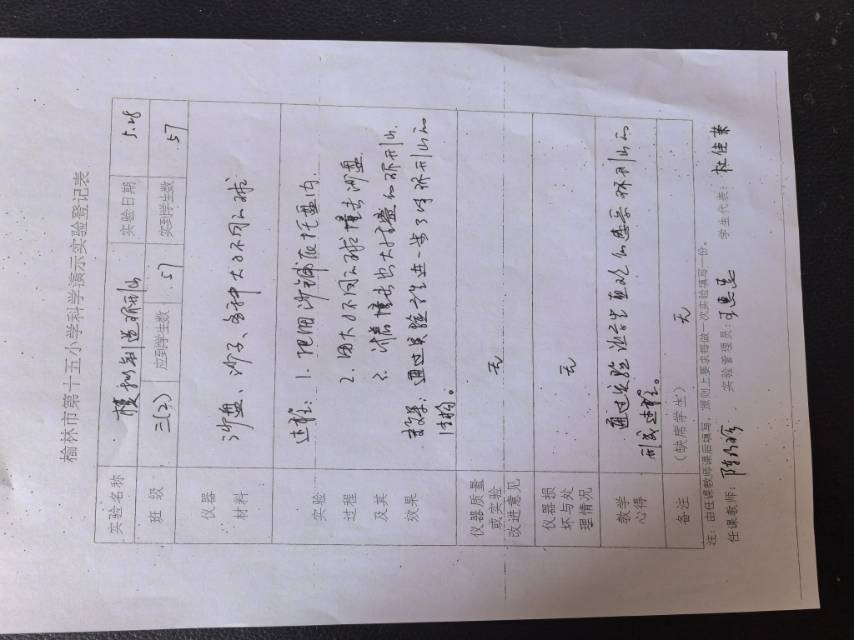 榆林市第十五小学科学演示实验登记表
实验名称 模拟制造环形山 实验日期 5.28
班 级 三(2) 应到学生数 57 实到学生数 57
仪器
材料
沙盘、沙子、各种大小不同的球
实验
过程
及其
效果
过程: 1. 把细沙铺在托盘内.
2. 用大小不同的球撞击沙盘
3. 沙盘撞击出大小
效果: 通过实验学生进一步了解环形山的
结构。
仪器质量
或实验
改进意见
无
仪器损
坏与处
理情况
无
教学
心得
通过实验让学生直观的感受环形山的
形成过程。
备注 (缺席学生) 无
注:由任课教师课后填写,原则上要求每做一次实验填写一份。
任课教师: 实验管理员: 学生代表: 杜佳荣